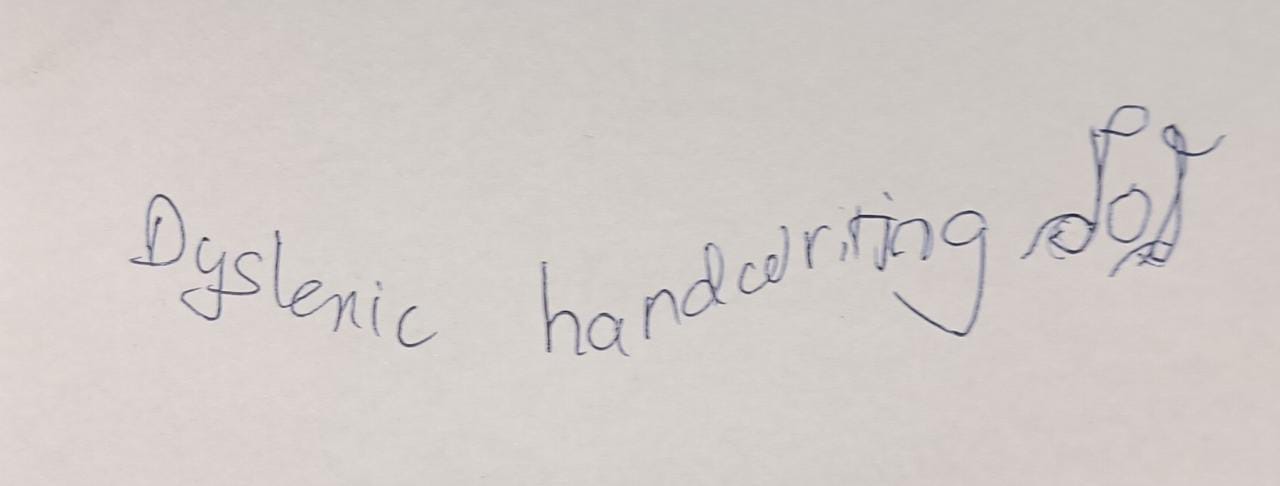 Dyslenic handwriting lol